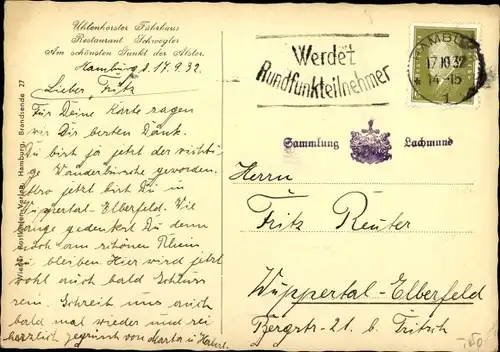 Uhlenhorster Fährhaus
Restaurant Schwegler
Am schönsten Punkt der Alster
Hamburg d. 17.9.32.
Lieber Fritz
Für Deine Karte sagen
wir Dir besten Dank.
Du bist ja jetzt der richti-
ge Wanderbursche geworden.
Also jetzt bist Du in
Wuppertal-Elberfeld. Wie
lange gedenkst Du denn
noch am schönen Rhein
zu bleiben. Hier wird jetzt
wohl auch bald Schluss
sein. Schreib uns auch
bald mal wieder und sei
herzlich gegrüsst von Marta u.
Wieder Postkarten-Verlag, Hamburg, Brandsende 27
Werdet
Rundfunkteilnehmer
HAMBURG
17.10.32
14-15
1
Sammlung Lachmund
Herrn
Fritz Reuter
Wuppertal-Elberfeld
Bergstr. 21. b. Fritsch